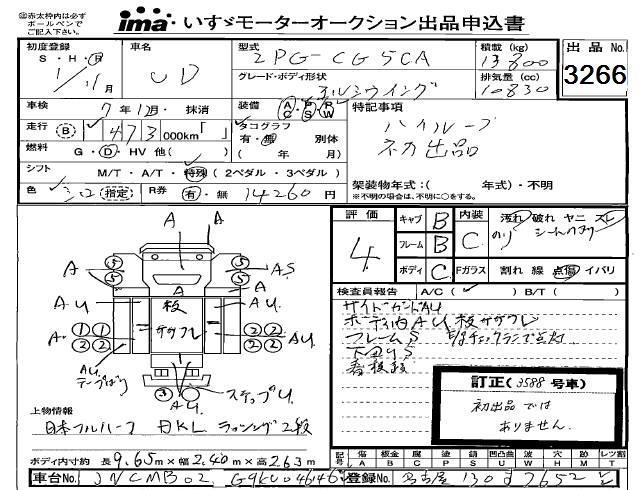 ㊟赤太枠内は必ず
ボールペンで
ご記入下さい。
ima いすゞモーターオークション出品申込書
初度登録 車名 型式 積載 (kg) 出品 No.
S・H・R UD 2PG-CG5CA 13800 3266
1/11月 グレード・ボディ形状 排気量 (cc)
アルミウイング 10830
車検 7年12月・抹消 装備 AC PS PW 特記事項
走行 B 473 000km「 」 タコグラフ 有・無 別体 ハイルーフ
燃料 G・D・HV 他( ) ( 年 月) ネカ出品
シフト M/T・A/T・特殊(2ペダル・3ペダル) 架装物年式:( 年式)・不明
※不明の場合は、不明に○をする。
色 シロ (指定) R券 有・無 14260円
評価 4 キャブ B 内装 C 汚れ 破れ ヤニ スレ
フレーム B のり シートヘタリ
ボディ C Fガラス 割れ 線 点傷 イバリ
検査員報告 A/C( ) B/T( )
サイドガードAU
ボディ内AU 板ササクレ
フレームS E/gチェックランプ点灯
下回りS
看板跡
訂正(3588号車)
初出品では
ありません.
A A
5 5 A 5 5
A A A AS
AU 板 AU
A 1 1 ササクレ 2 2 AU
2 2 2 2
AU
テープばり
3 ステップU
AU
上物情報
日本フルハーフ DKL ラッシング2段
ボディ内寸約 長 9.65m×幅 2.40m×高 2.63m
記号 傷 A 板金 B 腐 C 塗 P 錆 S 凹凸凹 U 波 W ヒビ Y 穴 H 跡 M レツ割 T
車台No. JNCMB02 G9KU046465 登録No. 名古屋 130 す 7652